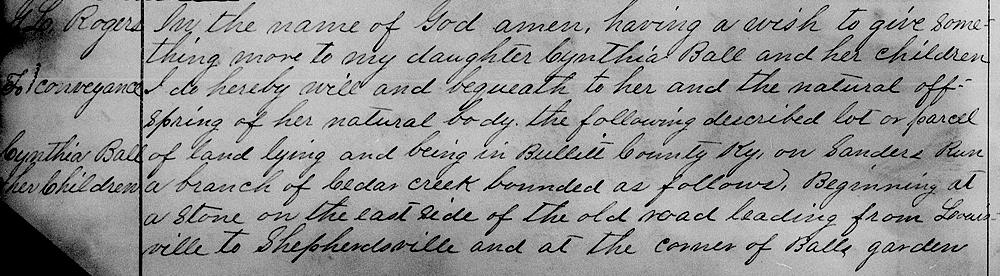 Rogers In the name of God amen, having a wish to give some=
thing more to my daughter Cynthia Ball and her children
To } conveyance I do hereby will and bequeath to her and the natural off-
spring of her natural body. the following described lot or parcel
Cynthia Ball of land lying and being in Bullitt County Ky, on Sanders Run
her Children a branch of Cedar creek bounded as follows, Beginning at
a stone on the east side of the old road leading from Louis-
ville to Shepherdsville and at the corner of Balls garden